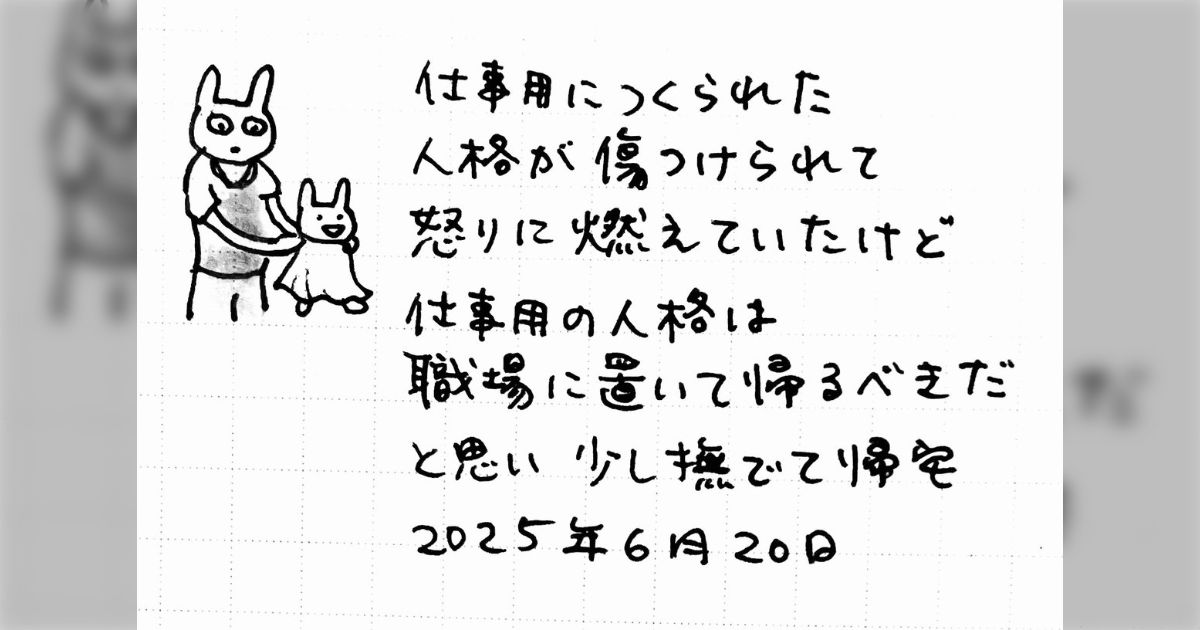 仕事用につくられた
人格が傷つけられて
怒りに燃えていたけど
仕事用の人格は
職場に置いて帰るべきだ
と思い 少し撫でて帰宅
2025年6月20日